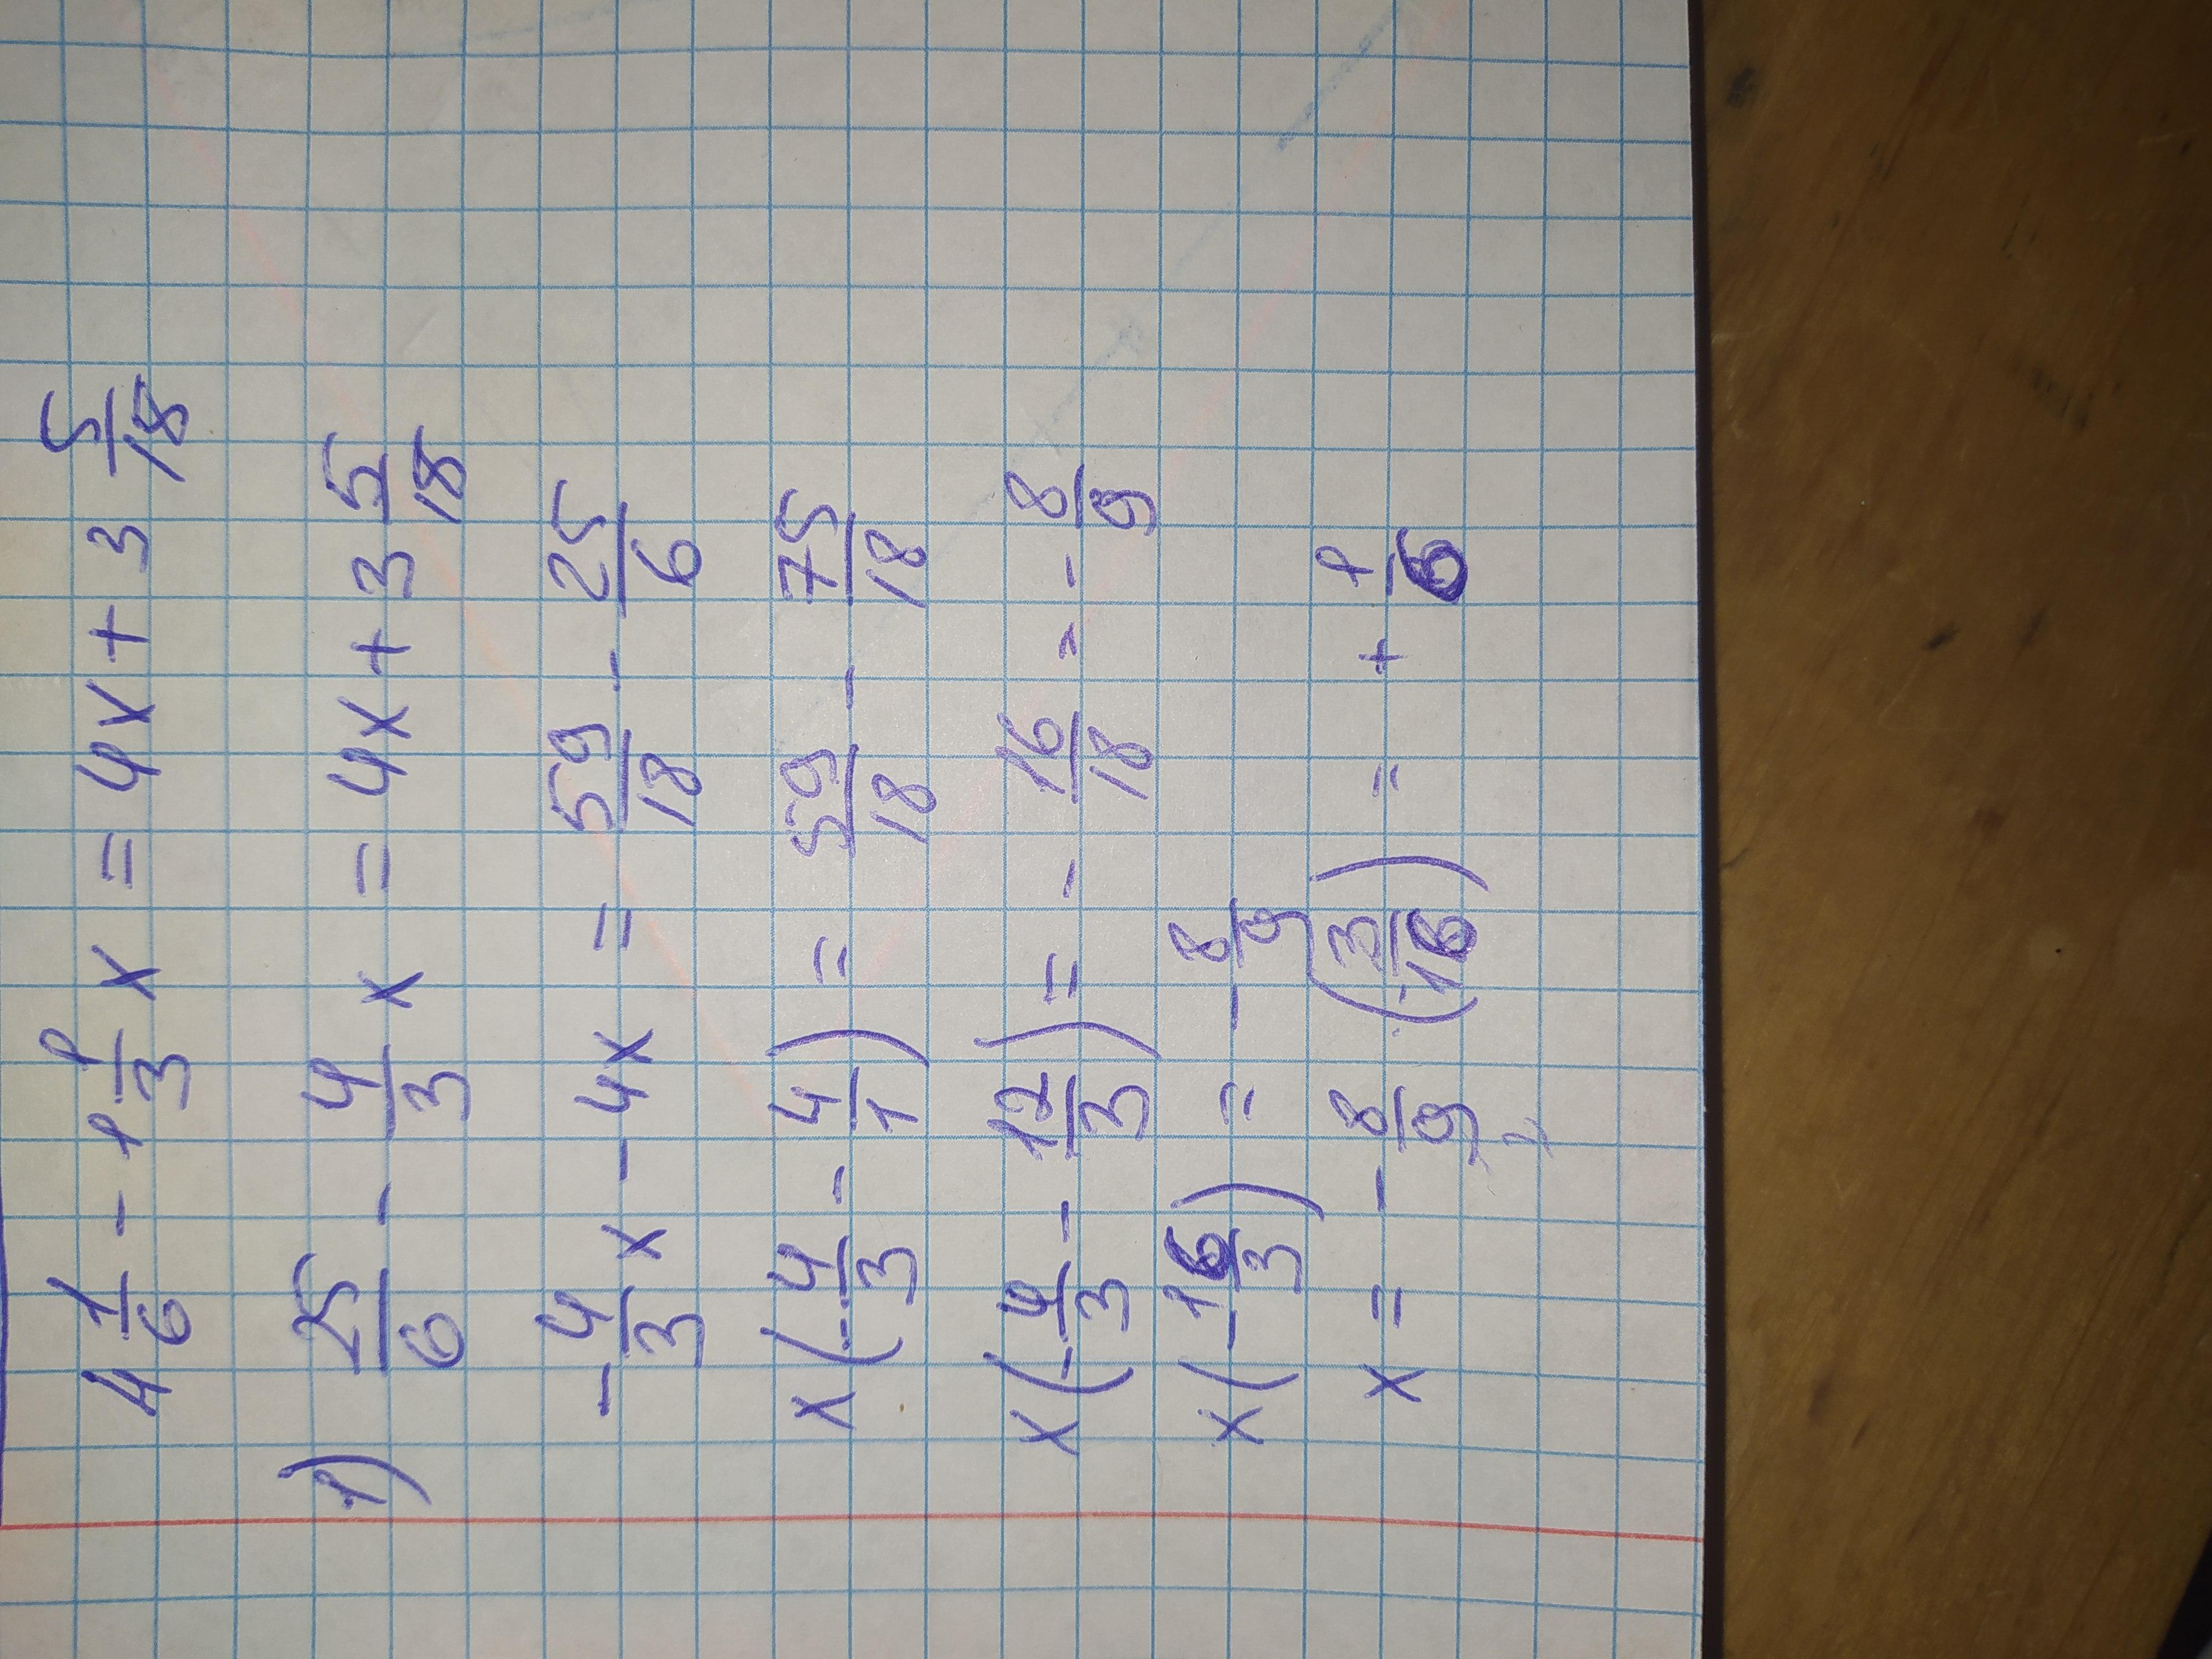 4 1/6 - 1 1/3 x = 4x + 3 5/18
1) 25/6 - 4/3 x = 4x + 3 5/18
- 4/3 x - 4x = 59/18 - 25/6
x (- 4/3 - 4/1) = 59/18 - 75/18
x (- 4/3 - 12/3) = - 16/18 = - 8/9
x (- 16/3) = - 8/9
x = - 8/9 · (3/16) = + 1/6